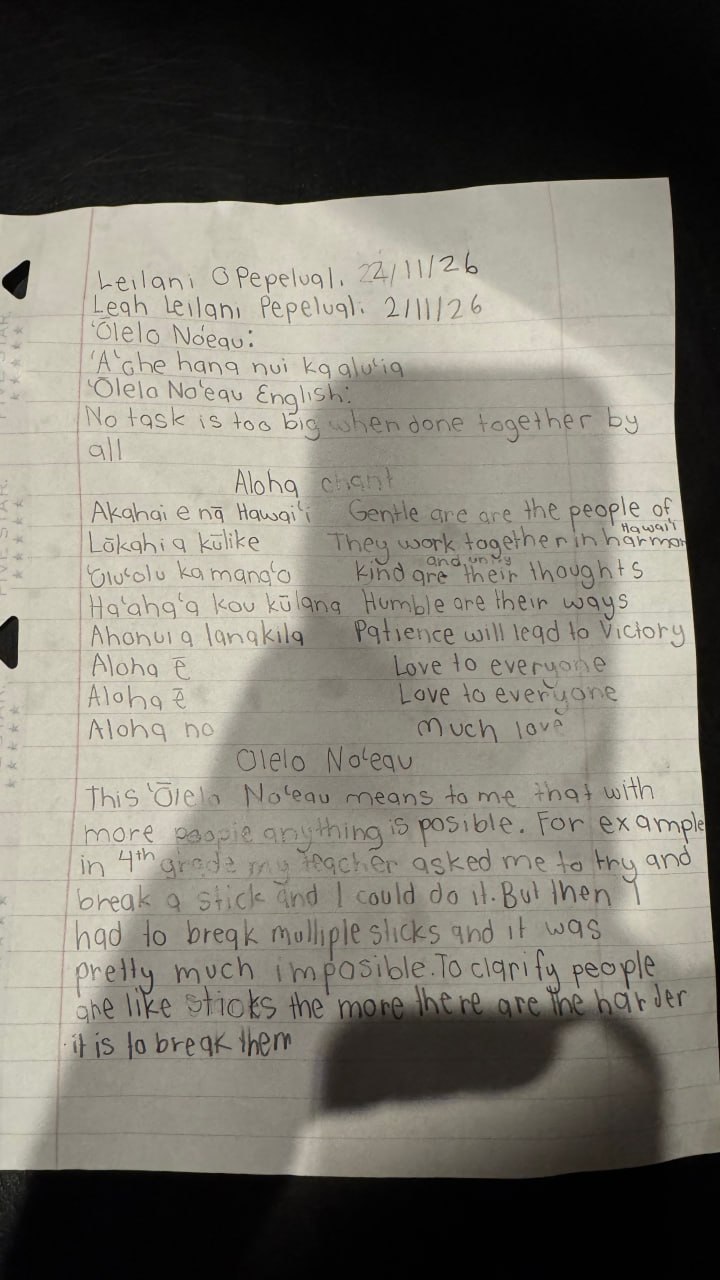 Leilani O Pepelual. 22/11/26
Leah Leilani Pepeluali 2/11/26
ʻŌlelo Noʻeau:
ʻAʻohe hana nui ka aluʻia
ʻŌlelo Noʻeau English:
No task is too big when done together by
all
Aloha chant
Akahai e nā Hawaiʻi Gentle are are the people of Hawaiʻi
Lōkahi a kūlike They work together in harmon and unity
ʻOluʻolu ka manaʻo kind are their thoughts
Haʻahaʻa kou kūlana Humble are their ways
Ahonui a lanakila Patience will lead to Victory
Aloha ē Love to everyone
Aloha ē Love to everyone
Aloha no much love
Olelo Noʻeau
This ʻŌlelo Noʻeau means to me that with
more people anything is posible. For example
in 4th grade my teacher asked me to try and
break a stick and I could do it. But then I
had to break multiple sticks and it was
pretty much imposible. To clarify people
are like sticks the more there are the harder
it is to break them